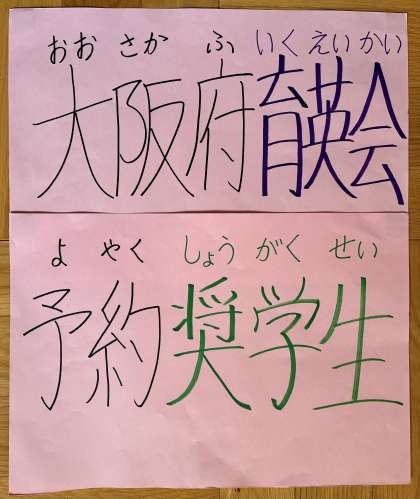 おお さか ふ いく えい かい
大阪府育英会
よ やく しょう がく せい
予約奨学生